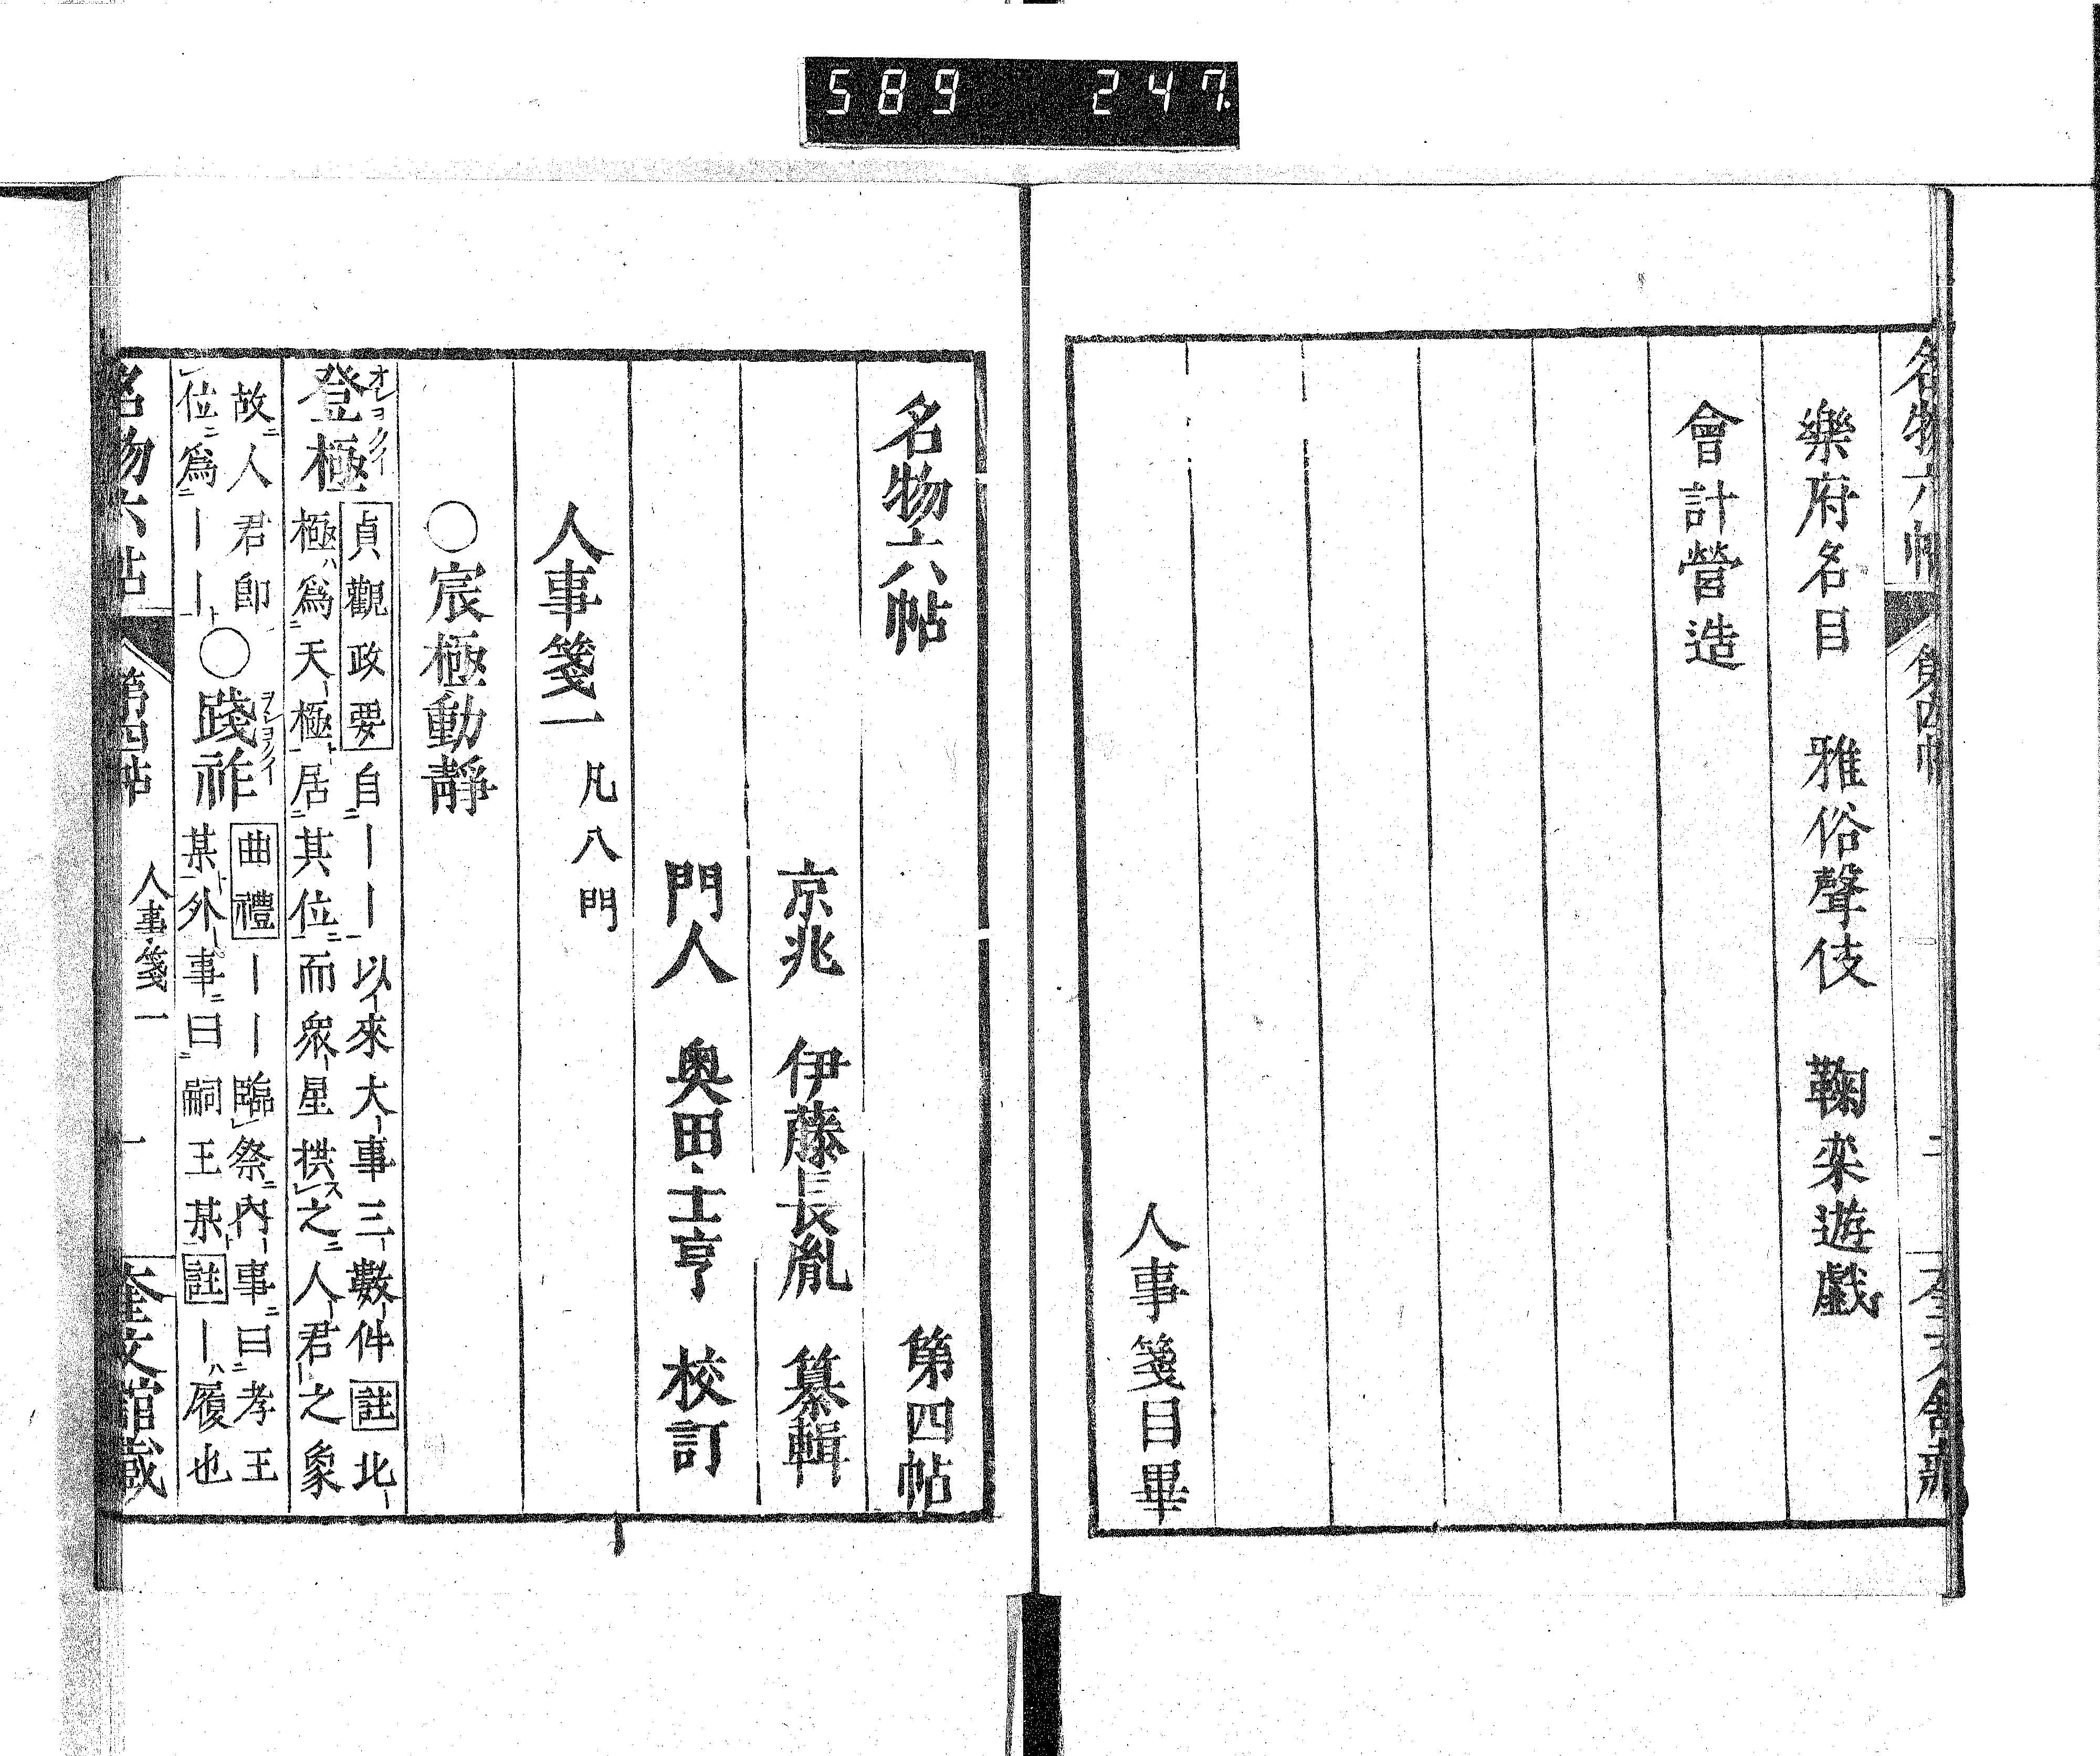 589 247.
名物六帖 第四帖 二
樂府名目 雅俗聲伎 鞠桒遊戯
會計營造
人事箋目畢
名物六帖 第四帖
京兆 伊藤長胤 纂輯
門人 奥田士亨 校訂
人事箋一 凡八門
○宸極動靜
登極 貞觀政要 自丨丨以來大事三數件 註 北
極爲天極居其位而衆星拱之人君之象
故人君卽
位爲丨丨
○踐祚 曲禮 丨丨臨祭內事曰孝王
某外事曰嗣王某 註 丨履也
名物六帖 第四帖 人事箋一 一 奎文館藏